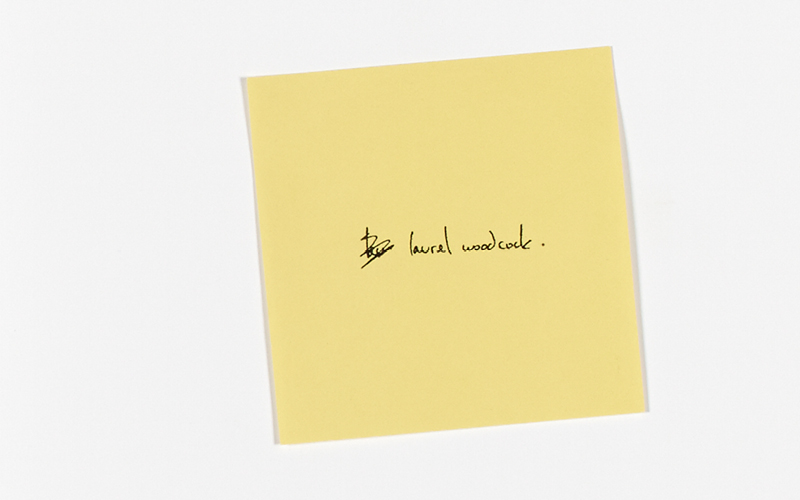 laurel woodcock.